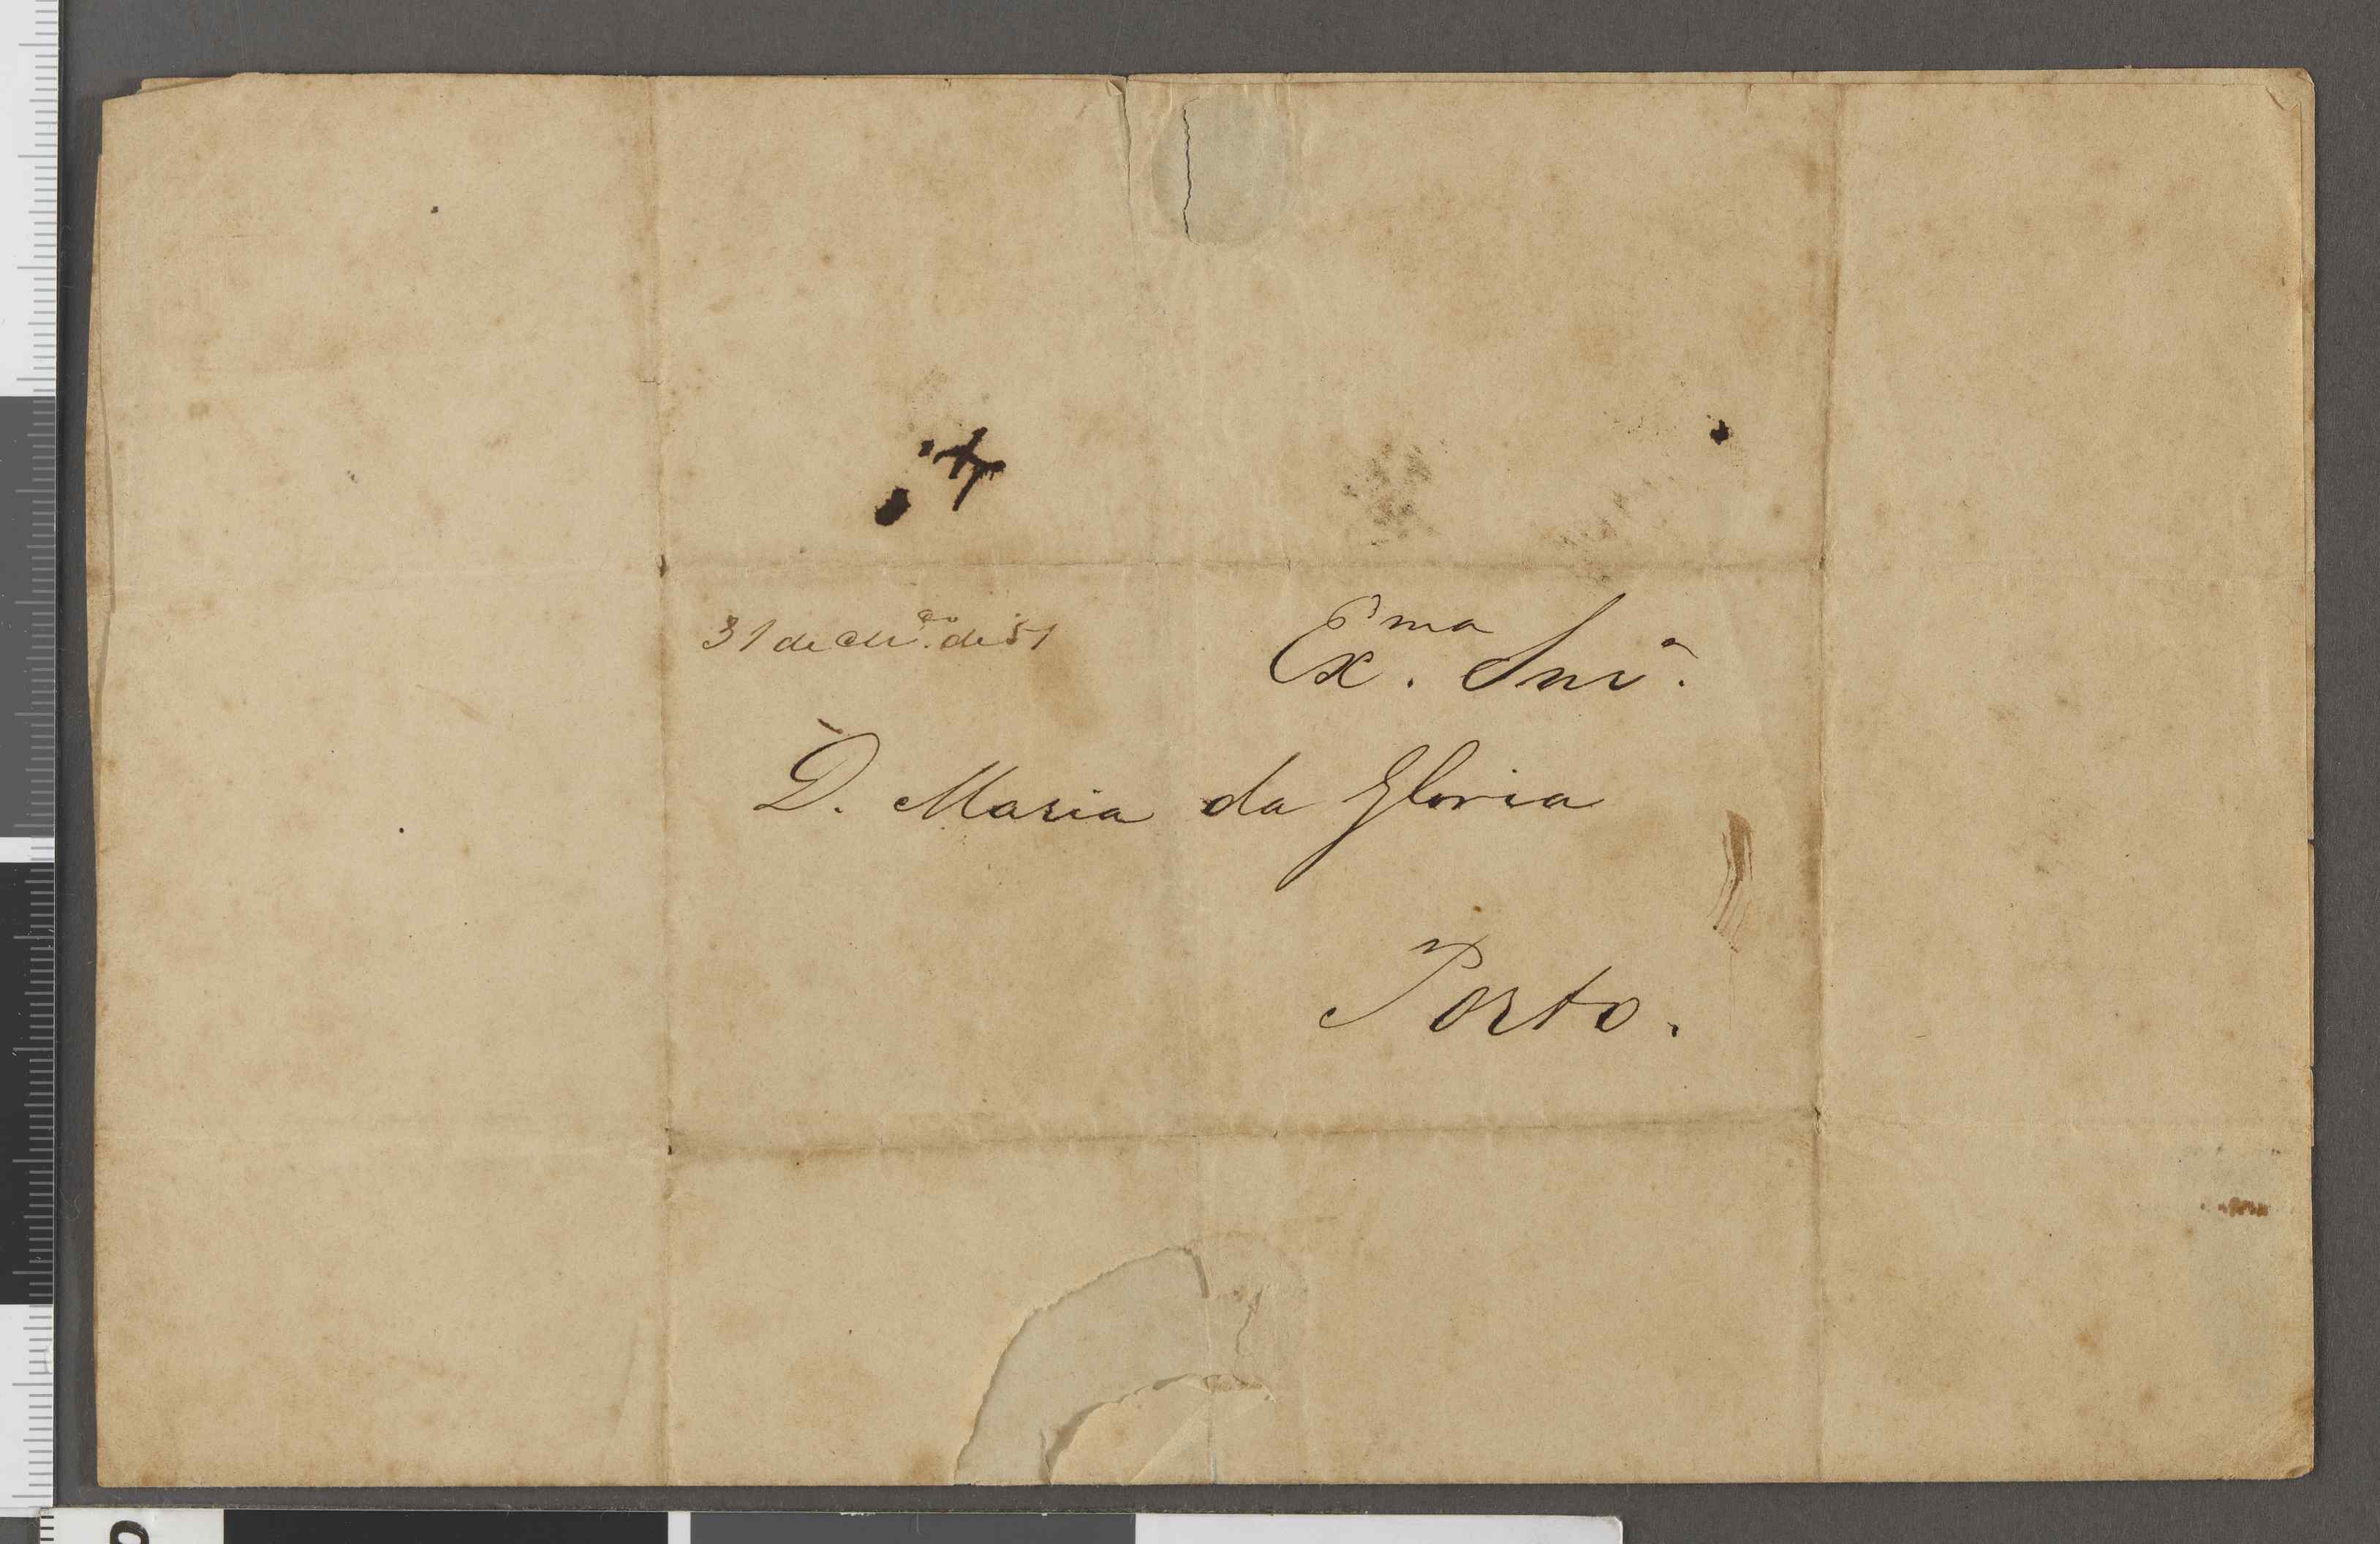 31 de de 51
Ex.ma Snrª.
D. Maria da Gloria
Porto.